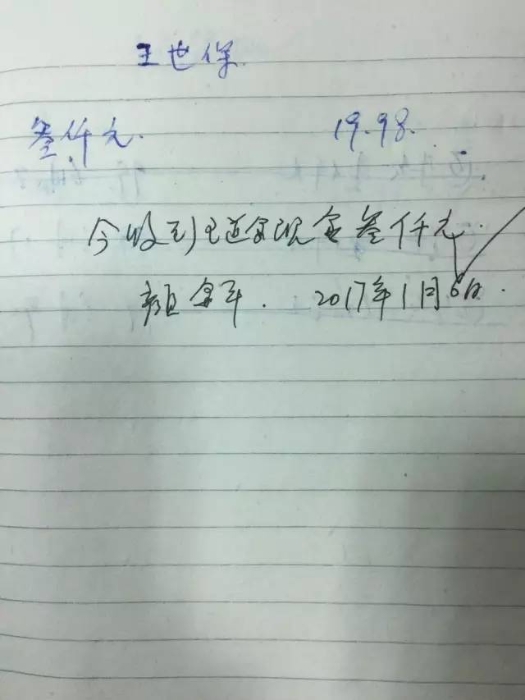 王世保
叁仟元. 19.98.
今收到退回现金叁仟元.
颜金平. 2017年1月6日.